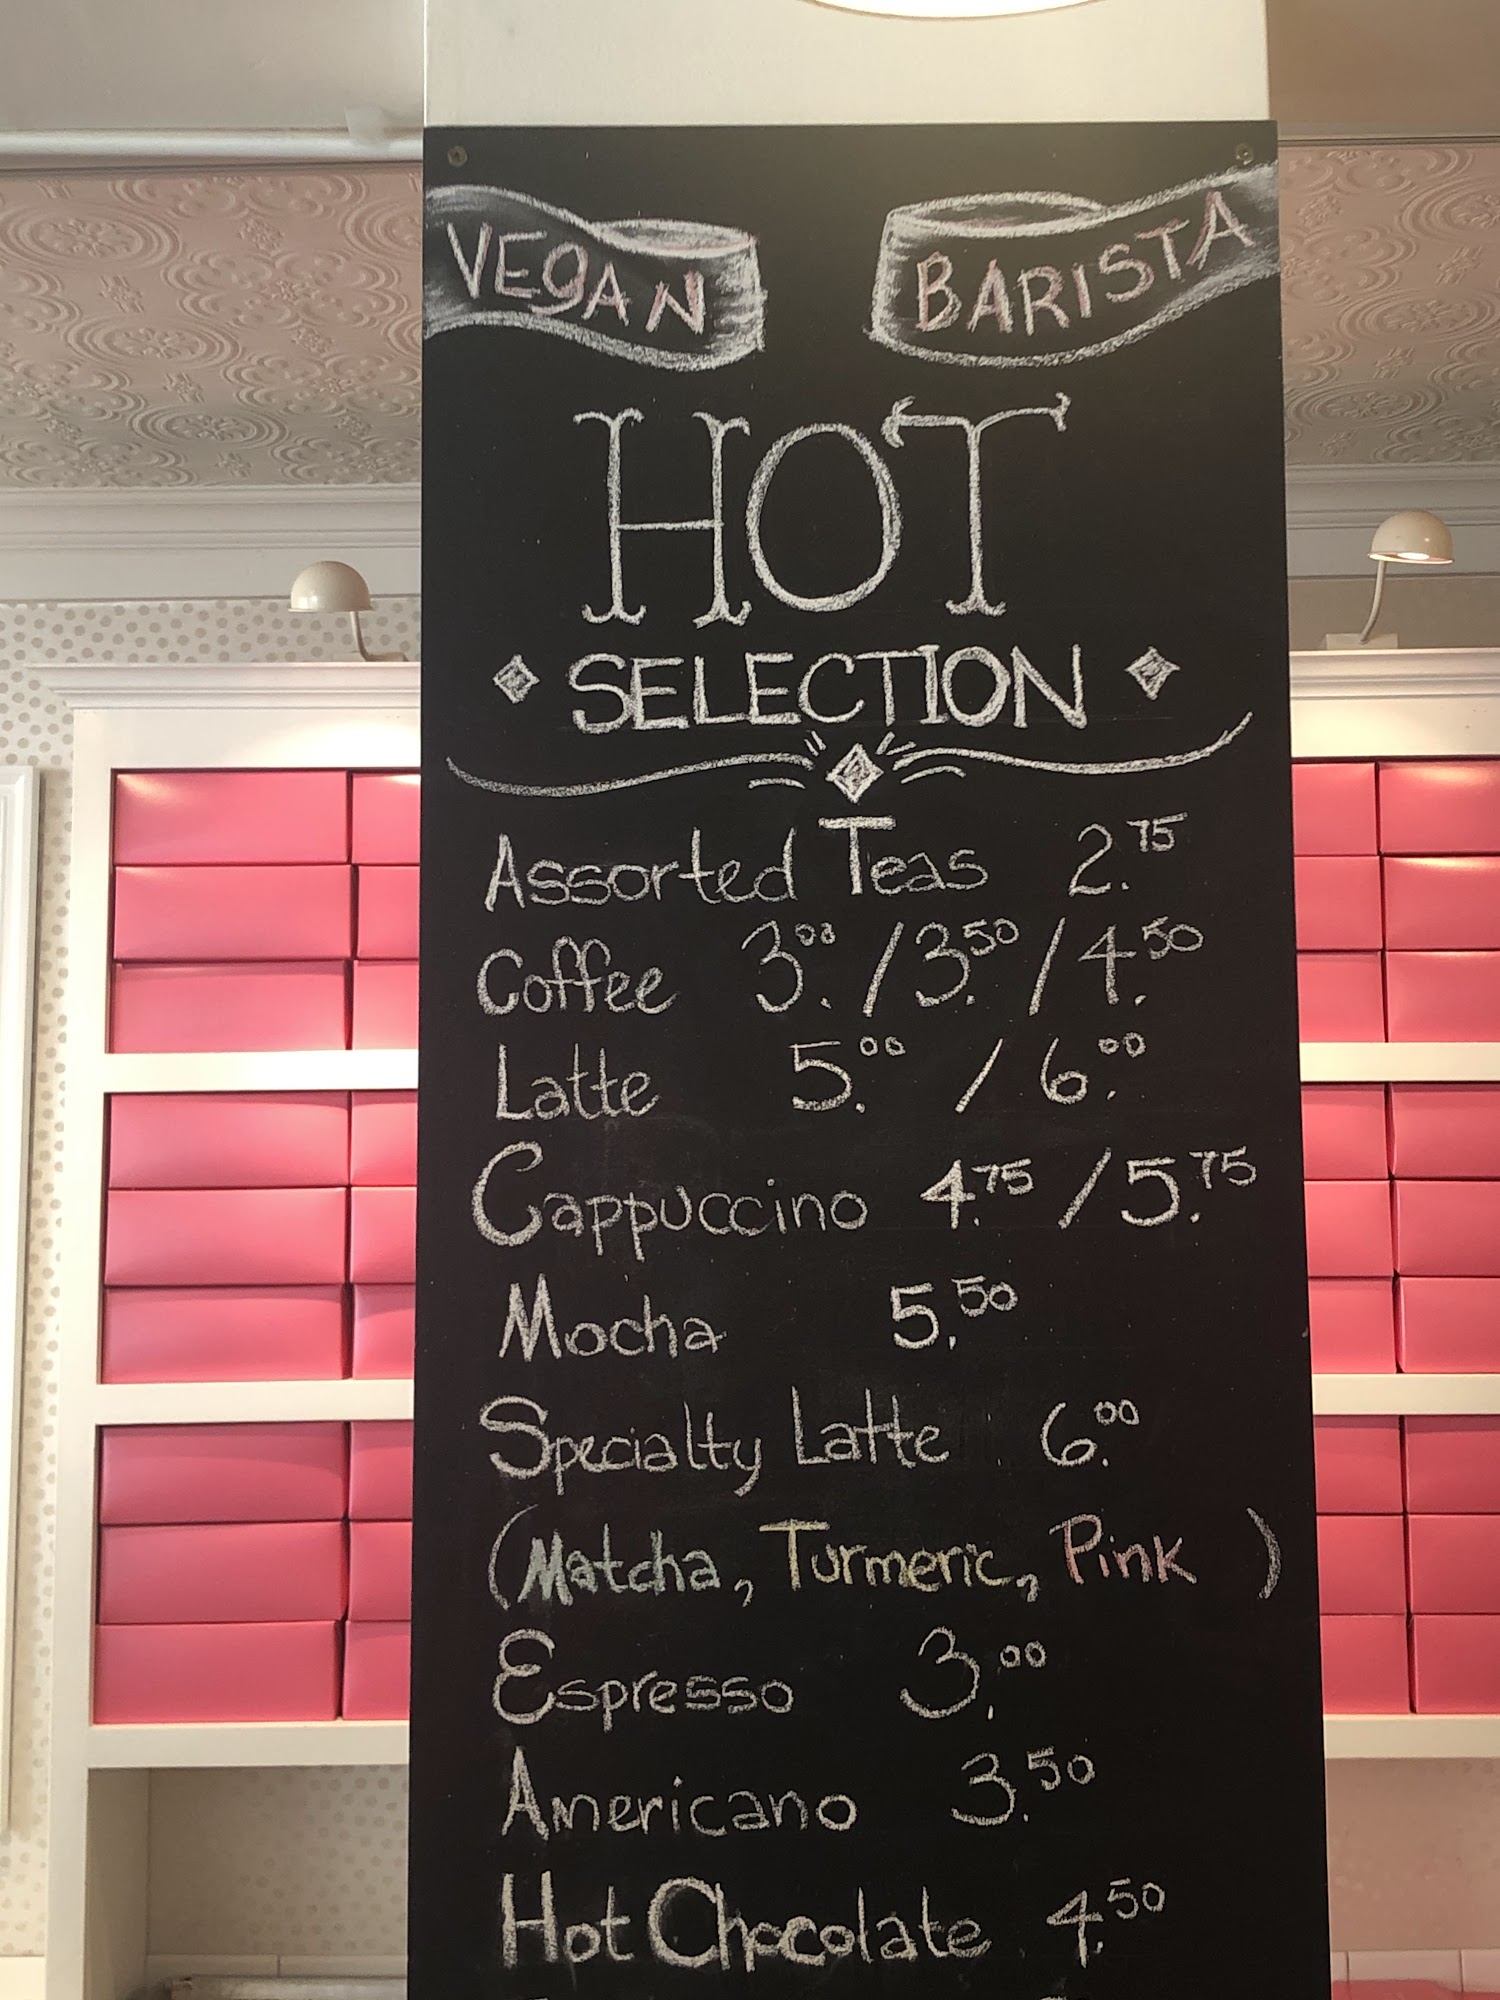 VEGAN BARISTA
HOT
SELECTION
Assorted Teas 2.75
Coffee 3.00 / 3.50 / 4.50
Latte 5.00 / 6.00
Cappuccino 4.75 / 5.75
Mocha 5.50
Specialty Latte 6.00
(Matcha, Turmeric, Pink )
Espresso 3.00
Americano 3.50
Hot Chocolate 4.50